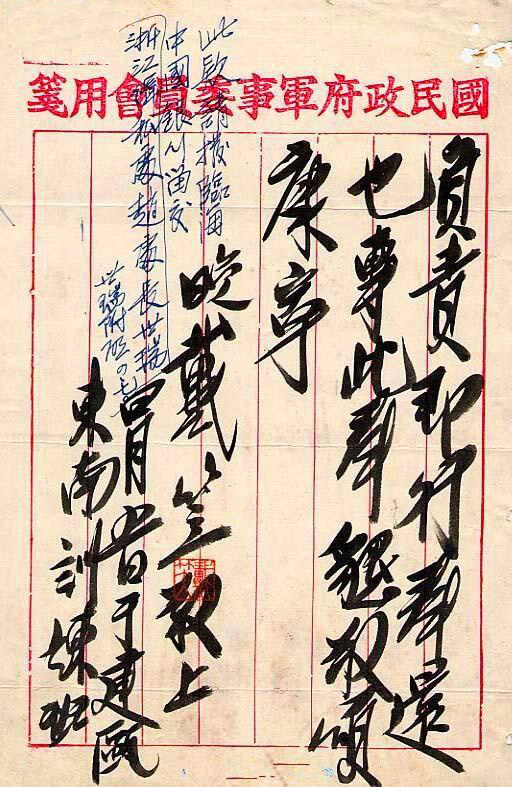 國民政府軍事委員會用箋
負責即行奉還
也專此奉懇敬頌
康寧
晚戴笠敬上
四月廿日于建甌
東南訓練班
此款請撥臨海
中國銀行留交
浙江緝私處趙處長世瑞
世瑞附